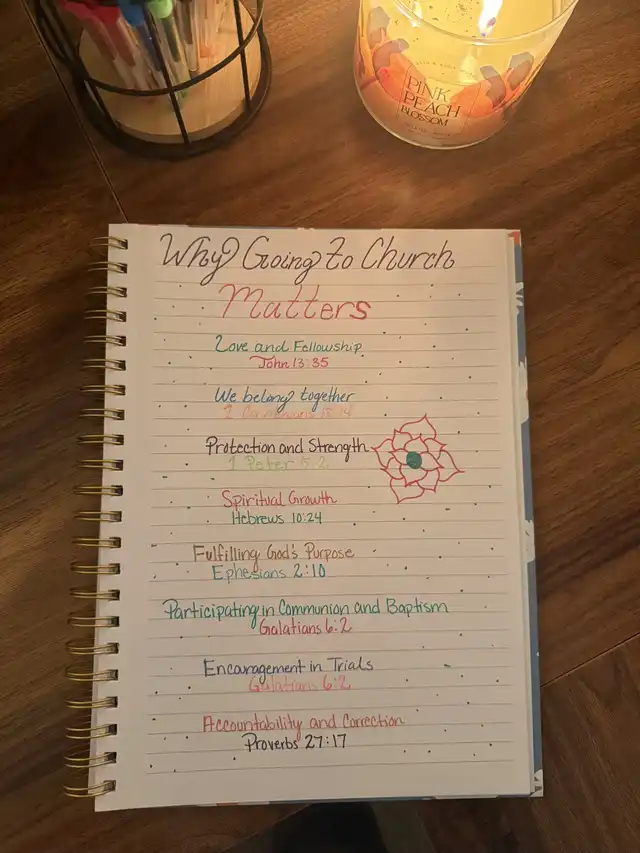 PINK
PEACH
BLOSSOM
Why Going to Church
Matters
Love and Fellowship
John 13:35
We belong together
Protection and Strength
1 Peter 5:2
Spiritual Growth
Hebrews 10:24
Fulfilling God's Purpose
Ephesians 2:10
Participating in Communion and Baptism
Galatians 6:2
Encouragement in Trials
Galatians 6:2
Accountability and Correction
Proverbs 27:17